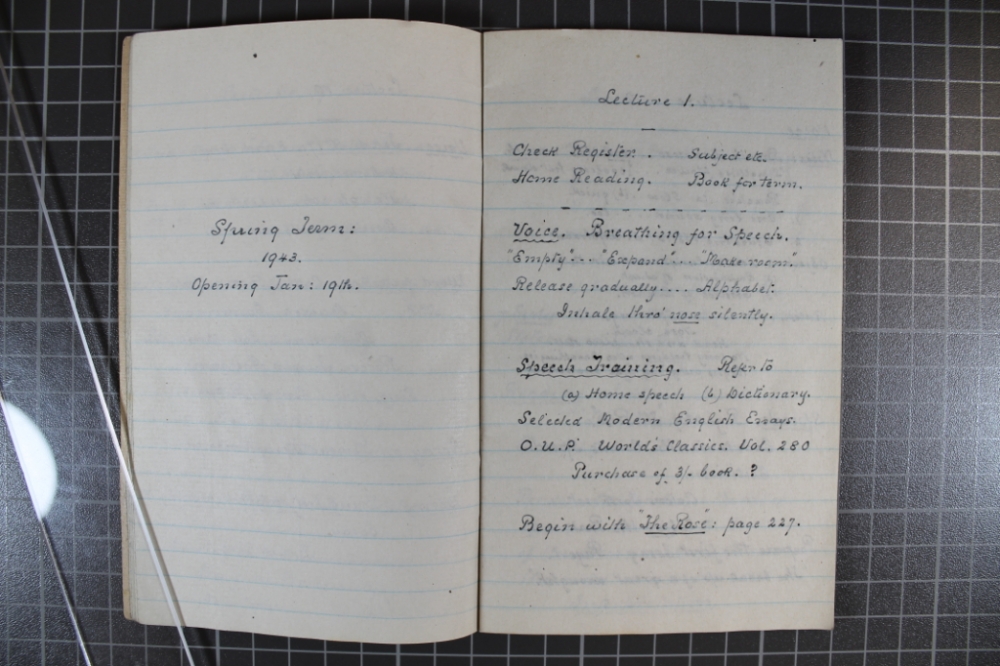 Spring Term:
1943.
Opening Jan: 19th.
Lecture 1.
Check Register. Subject etc.
Home Reading. Book for term.
Voice. Breathing for Speech.
"Empty"... "Expand"... "Make room."
Release gradually.... Alphabet.
Inhale thro' nose silently.
Speech Training. Refer to
(a) Home speech (b) Dictionary.
Selected Modern English Essays.
O.U.P. World's Classics. Vol. 280
Purchase of 3/- book. ?
Begin with "The Rose": page 227.